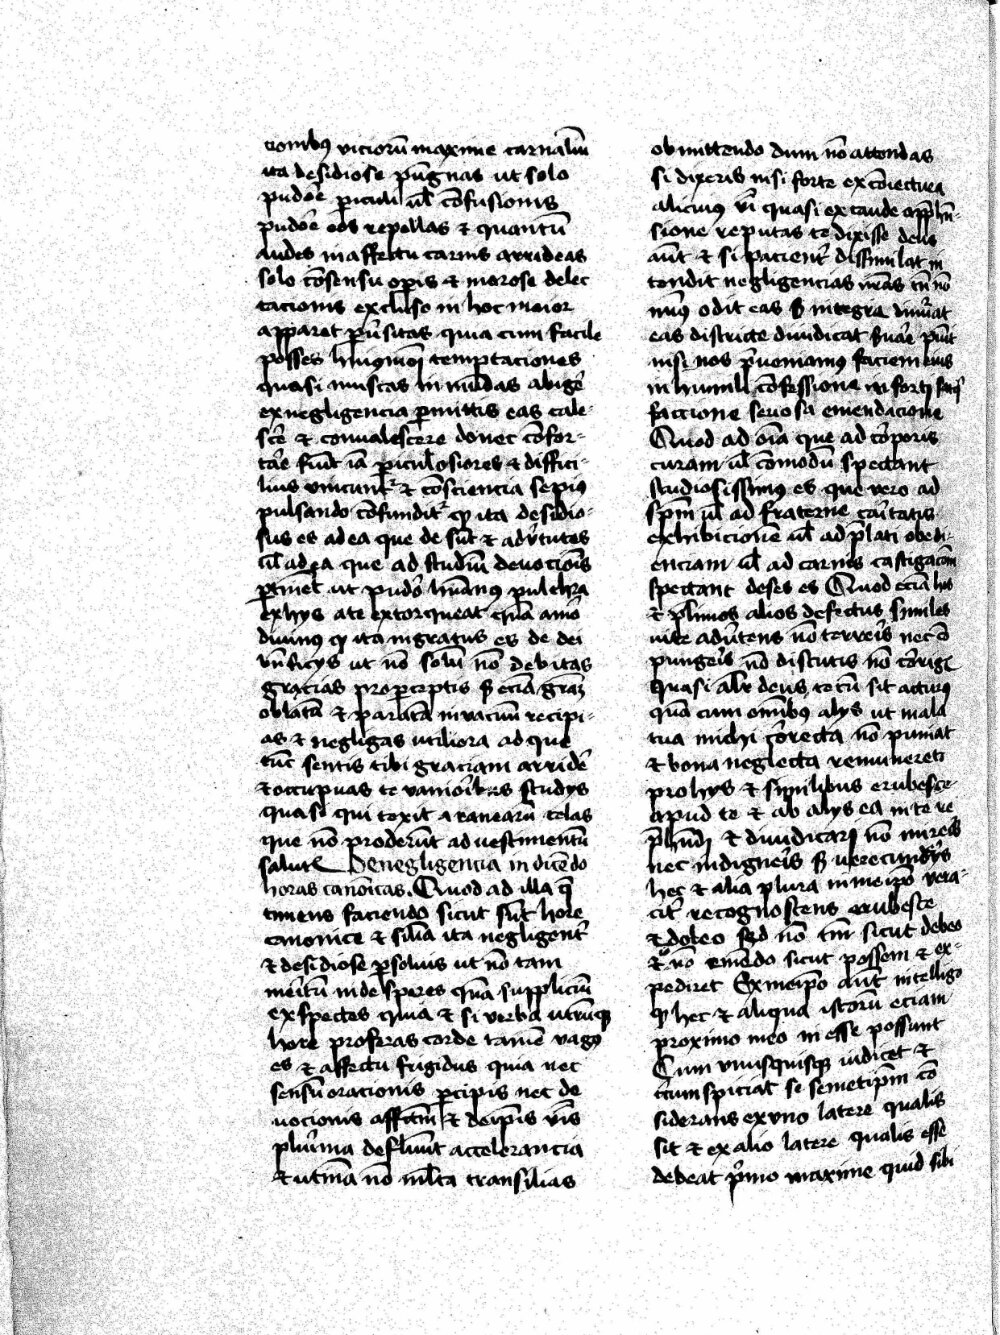 cionibꝫ viciorū maxime carnaliū
ita desidiose pūgnas ut solo
pudoꝛe periculi ul̄ cōfusionis
pudoꝛe eos repellas & quantū
audes in affectu carnis arrideas
solo cōsensu opis & morose delec
tacionis excluso in hoc maior
apparet pūsitas quia cum facile
posses hmōi temptaciones
quasi muscas in mūdas abige
ex negligencia pmittis eas cale-
sce & conualescere donec cōfor-
tate fiūt ia piculosiores & diffici-
lius vincunt & cōsciencia sepius
pulsando cōfundit ꝙ ita desidio-
sus es ad ea que de sūt & adv̄tutes
ul̄ ad ea que ad studiū deuocionis
ptinēt ut pudoꝛ hūanus pulchra
ex hys a te extorqueat quā amoꝛ
diuinus ꝙ ita ingratus es de dei
bn̄ficys ut nō solū nō debitas
gracias pro pceptis sꝫ eciā grām
oblatā & paratā in vacuū recipi-
as & negligas utiliora ad que
tūc sentis tibi graciam arride
& occupas te vanioribꝫ studys
quasi qui texit aranearū telas
que nō proderūt ad vestimentū
salutꝭ De negligencia in dicēdo
horas canōicas. Quod ad illa q̄
timens faciendo sicut sūt hore
canonice & silia ita negligent̄
& desidiose psoluis ut nō tam
meritū inde speres quā suppliciū
exspectes quia & si verba utrūqꝫ
hore proferas corde tamē vagꝰ
es & affectu frigidus quia nec
sensū oracionis pcipis nec de
uocionis affctm̄ & de ipis v̄bis
pluꝛima defluūt accelerancia
& utinā nō mlta transilias
obmittendo dum nō attendas
si dixeris nisi forte ex cōiectura
alicuiꝰ v̄i quasi ex caude apphē-
sione reputas te dixisse deus
aūt & si pacient̄ dissimulat in
tendit negligencias nr̄as tn̄ nō
minꝰ odit eas sꝫ integra dimīat
eas districte diiudicat puniet
nisi nos pueniamꝰ faciem eius
in humili cōfessione in forti satis
faccione seuosa emendacione
Quod ad oīa que ad coꝛporis
curam ul̄ cōmodū spectant
studiosissimus es que vero ad
spm̄ ul̄ ad fraterne caritatis
exhibicionē ul̄ ad plati obedi-
enciam ul̄ ad carnis castigacōm
spectant deses es Quod eciā hos
& plimos alios defectus similes
uite aduertens nō terreris nec cō
pungeris nō discutis nō corigꝭ
quasi aliter deus tecū sit acturꝰ
quā cum omībꝫ alys ut mala
tua michi coꝛrecta nō puniat
& bona neglecta remuneret
pro hys & similibus erubesce
apud te & ab alys ea in te re
phendi & diiudicari nō mireris
nec indigneris sꝫ verecundꝰ
hec & alia plura in meipō vera-
cit̄ recognoscens erubesce
& doleo sed nō tm̄ sicut debeo
& nō emēdo sicut possem & ex-
pediret Ex meipō aūt intelligo
ꝙ hec & aliqua istorū eciam
proximo meo in esse possunt
Cum vnusquisqꝫ iudicet &
circumspiciat se semetipm̄ cō
siderans ex vno latere qualis
sit & ex alio latere qualis esse
debeat primo maxime quid sibi